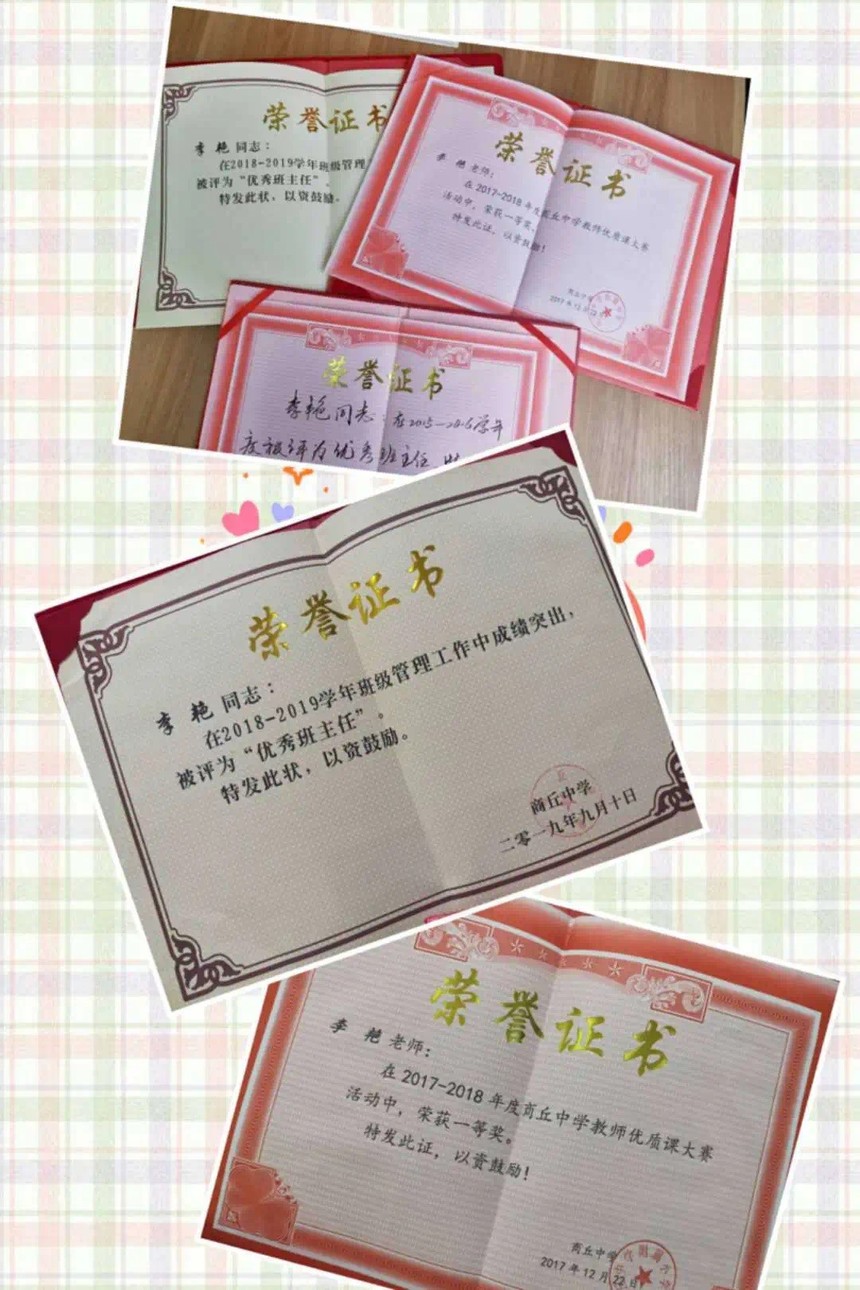 荣誉证书
李 艳 同志：
在2018-2019学年班级管理
被评为“优秀班主任”。
特发此状，以资鼓励。
荣誉证书
李 艳 老师：
在 2017-2018 年度商丘中学教师优质课大赛
活动中，荣获一等奖。
特发此证，以资鼓励！
商丘中学
2017年12月22日
荣誉证书
李艳同志：在2015—2016学年
度被评为优秀班主任
荣誉证书
李 艳 同志：
在2018-2019学年班级管理工作中成绩突出，
被评为“优秀班主任”。
特发此状，以资鼓励。
商丘中学
二零一九年九月十日
荣誉证书
李 艳 老师：
在 2017-2018 年度商丘中学教师优质课大赛
活动中，荣获一等奖。
特发此证，以资鼓励！
商丘中学
2017 年 12 月 22 日